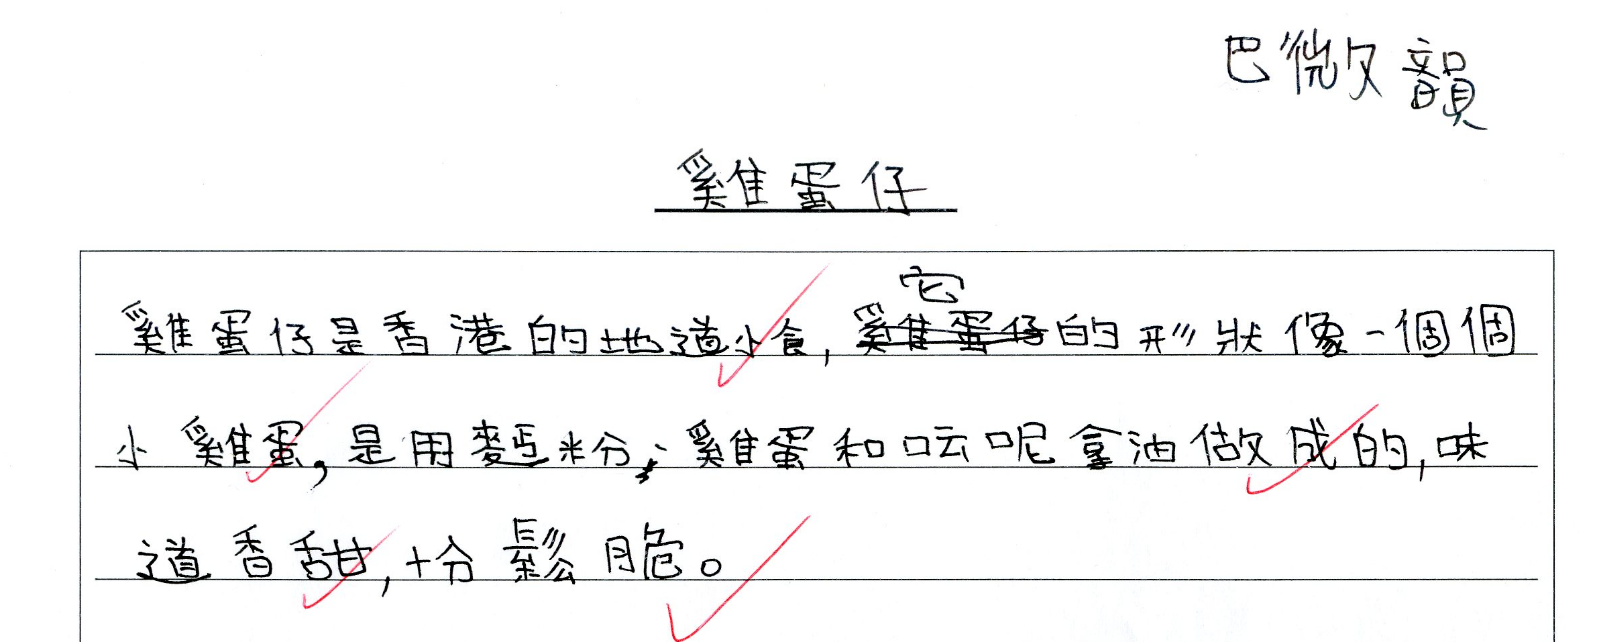 巴微韻
雞蛋仔
它
雞蛋仔是香港的地道小食,雞蛋仔的形狀像一個個
小雞蛋,是用麪粉、雞蛋和呍呢拿油做成的,味
道香甜,十分鬆脆。